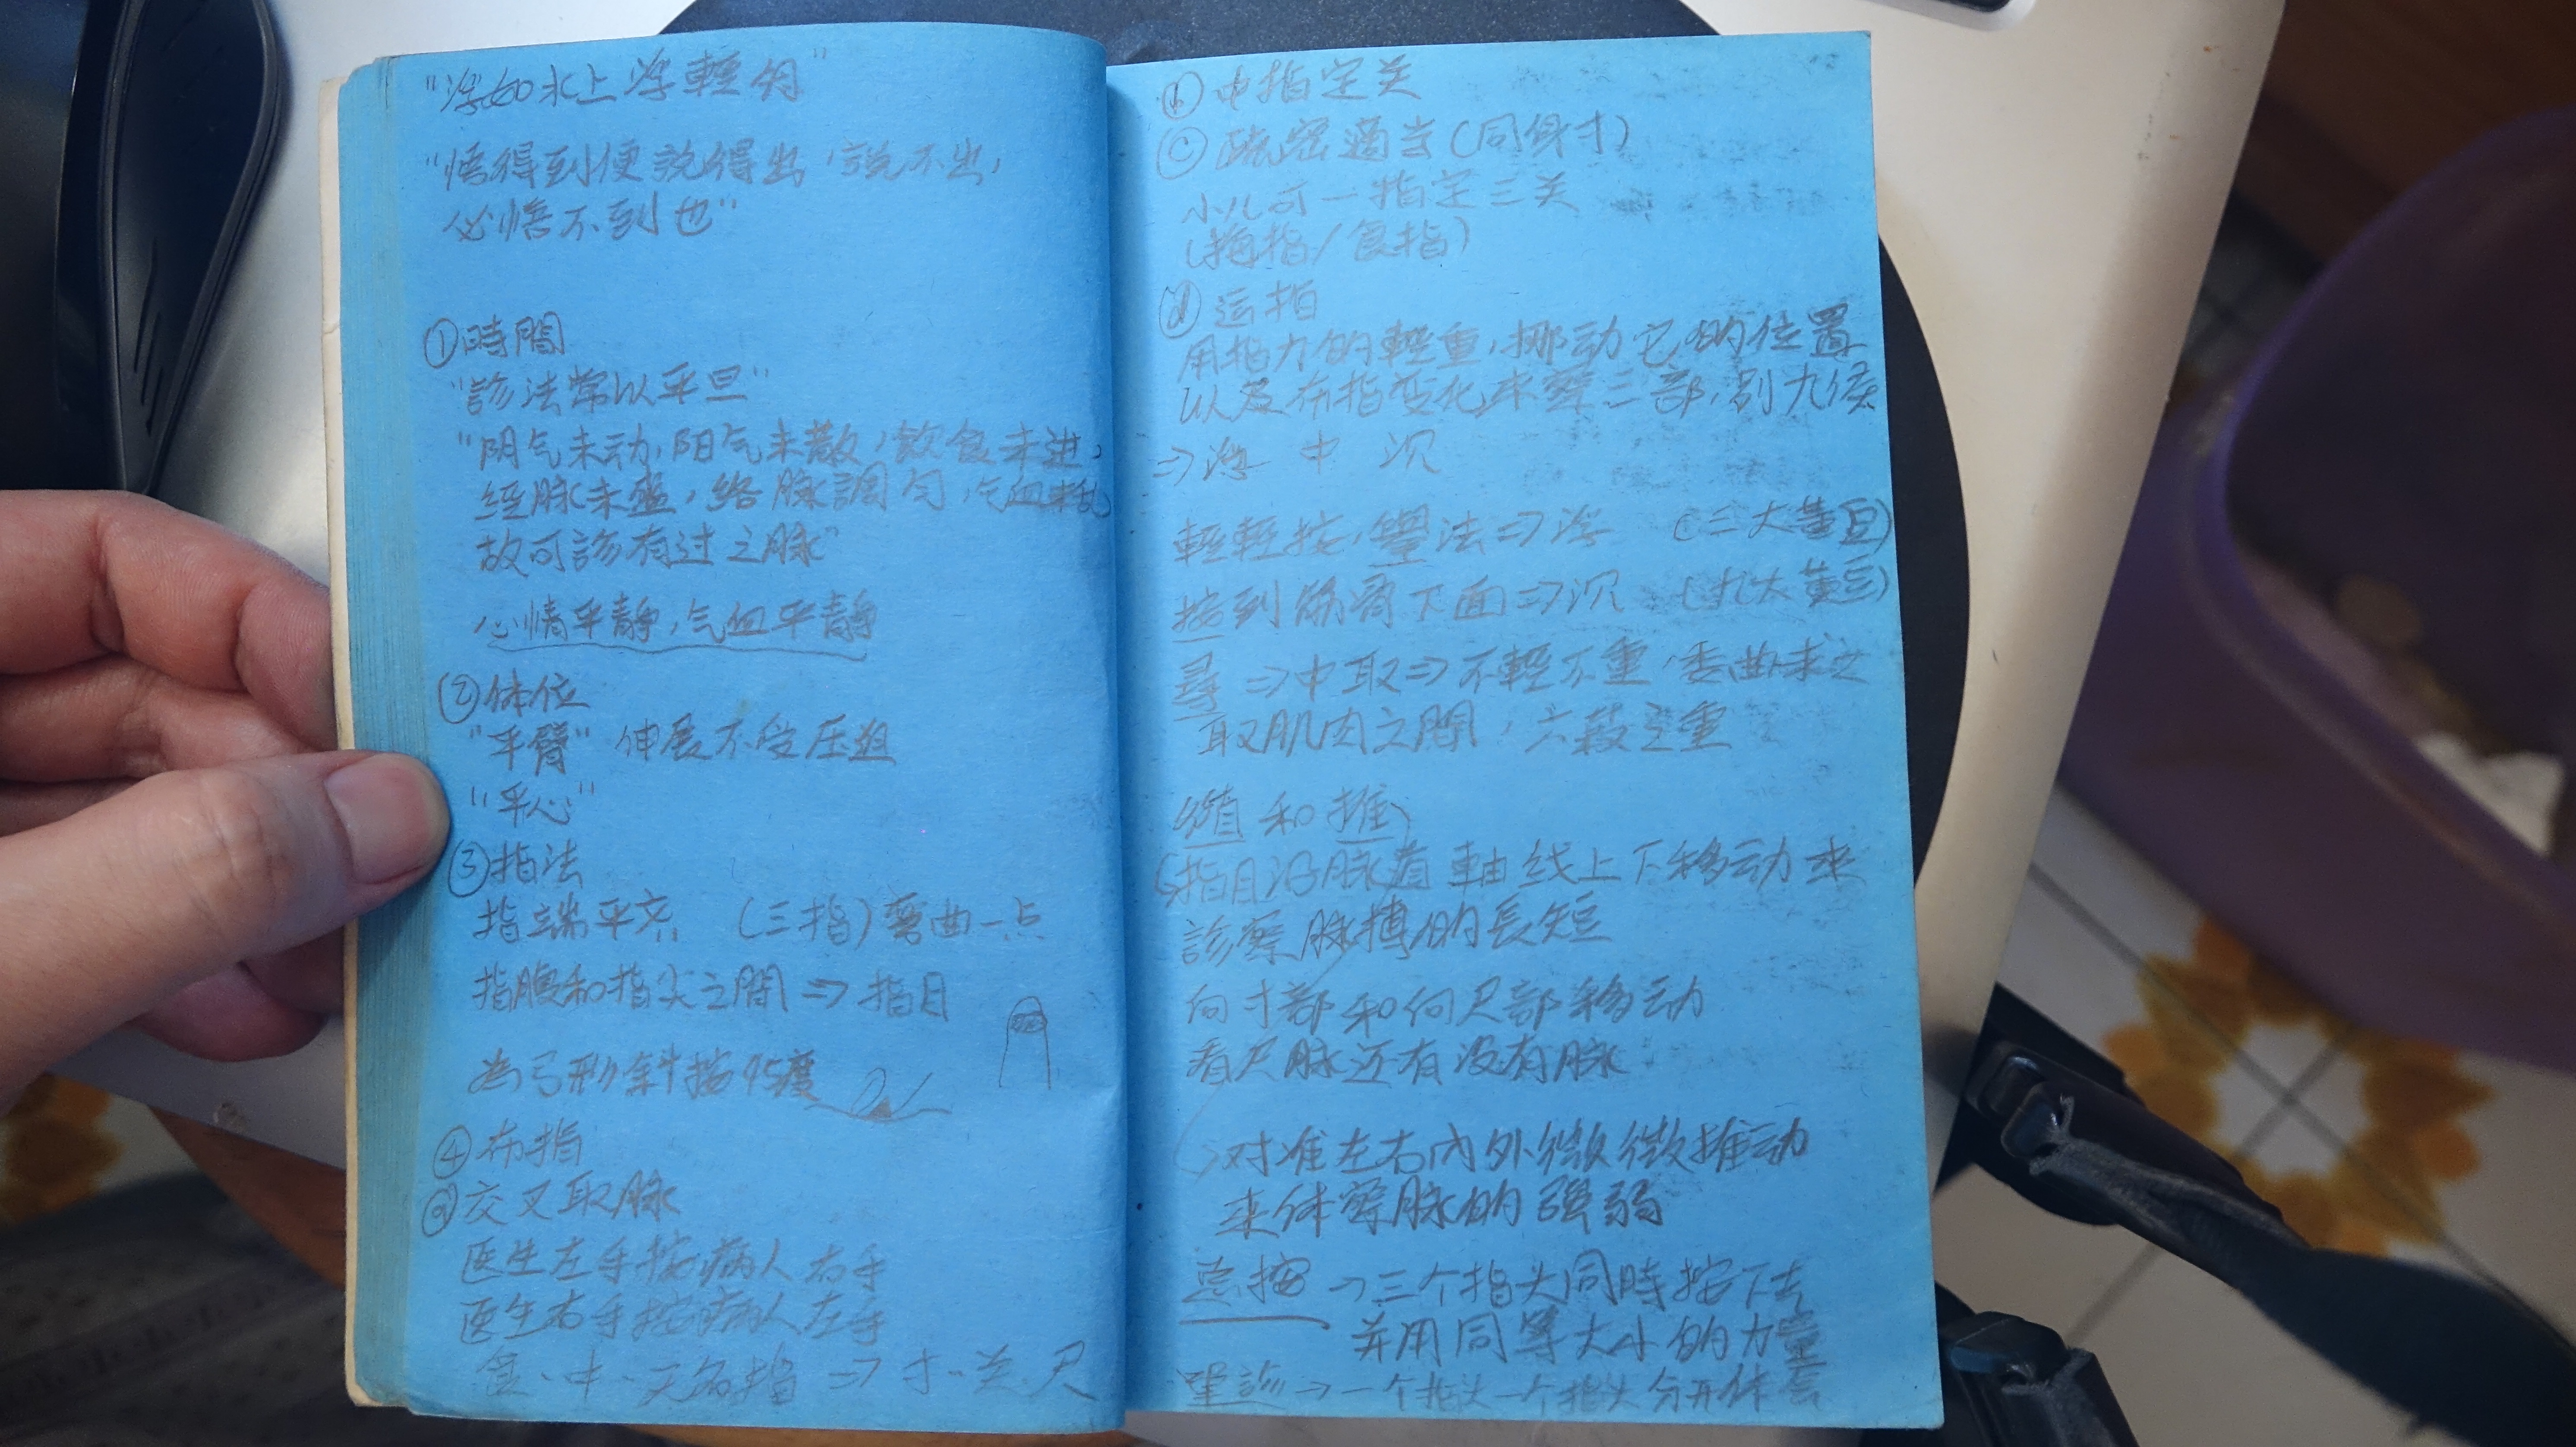 "浮如水上浮輕勻"
"悟得到便說得出，說不出，
必悟不到也"
①時間
"診法常以平旦"
"阴气未动，阳气未散，飲食未进，
經脉未盛，络脉調勻，气血未乱
故可診有过之脉"
心情平静，气血平靜
②体位
"平臂" 伸展不受压迫
"平心"
③指法
指端平齐 (三指)弯曲一点
指腹和指尖之間⇒指目
為弓形斜按45度
④布指
ⓐ交叉取脉
医生左手按病人右手
医生右手按病人左手
食·中·无名指⇒寸·关·尺
ⓑ中指定关
ⓒ疏密適当(同身寸)
小儿可一指定三关
(拇指/食指)
ⓓ运指
用指力的輕重，挪动它的位置
以及布指变化来察三部，別九候
⇒浮 中 沉
輕輕按，舉法⇒浮 (三大黃豆)
按到筋骨下面⇒沉 (九大黃豆)
尋⇒中取⇒不輕不重，委曲求之
取肌肉之間，六菽之重
循和推
指目沿脉着軸线上下移动来
診察脉搏的長短
向寸部和向尺部移动
看尺脉还有没有脉
对准左右內外微微推动
来体察脉的强弱
总按→三个指头同時按下去
并用同等大小的力量
單診→一个指头一个指头分开体会